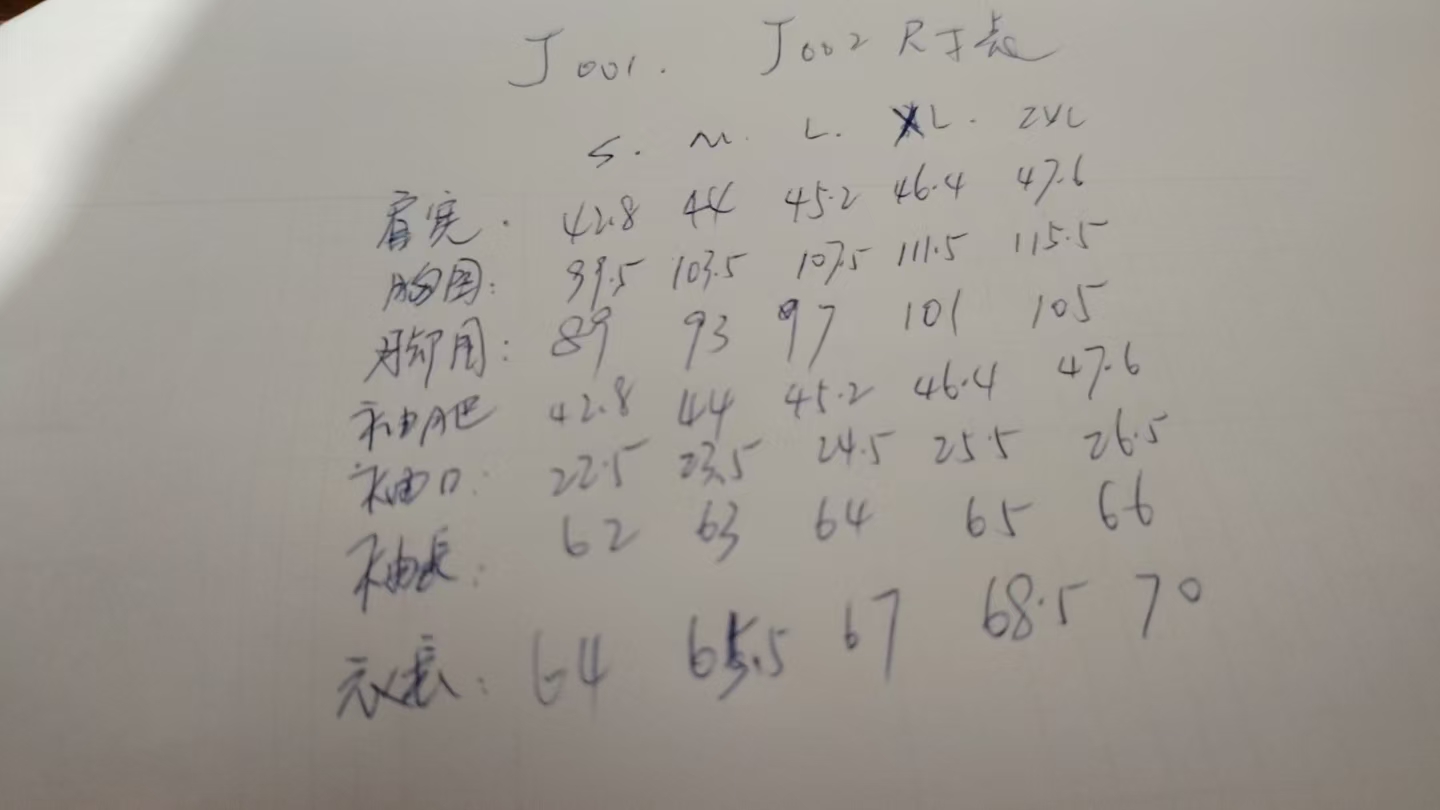 J001. J002尺寸表
S. M. L. XL. 2XL
肩宽. 42.8 44 45.2 46.4 47.6
胸围: 99.5 103.5 107.5 111.5 115.5
脚围: 89 93 97 101 105
袖肥 42.8 44 45.2 46.4 47.6
袖口: 22.5 23.5 24.5 25.5 26.5
袖长: 62 63 64 65 66
衣长: 64 65.5 67 68.5 70